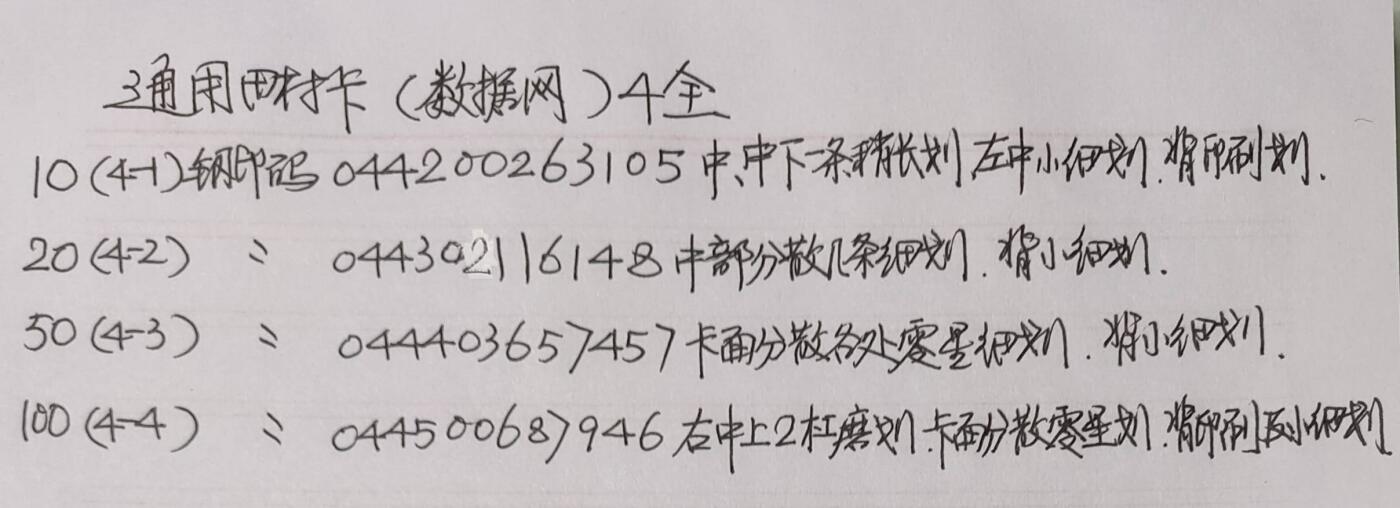 通用田村卡（数据网）4全
10(4-1)钢印码 044200263105 中、中下一条稍长划 左中小细划.背印刷划.
20(4-2) 〃 044302116148 中部分散几条细划.背小细划.
50(4-3) 〃 044403657457 卡面分散各处零星细划.背小细划.
100(4-4) 〃 044500687946 右中上2杠磨划.卡面分散零星划.背印刷及小细划